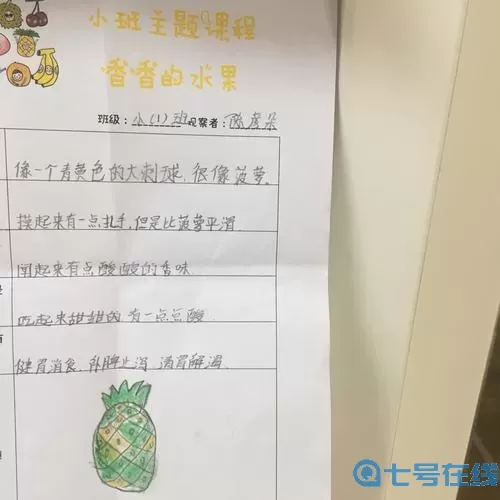 小班主题课程
香香的水果
班级：小(1)班观察者：陈彦朵
像一个青黄色的大刺球，很像菠萝。
摸起来有一点扎手，但是比菠萝平滑
闻起来有点酸酸的香味
吃起来甜甜的 有一点点酸
健胃消食、补脾止泻、清胃解渴.
七号在线